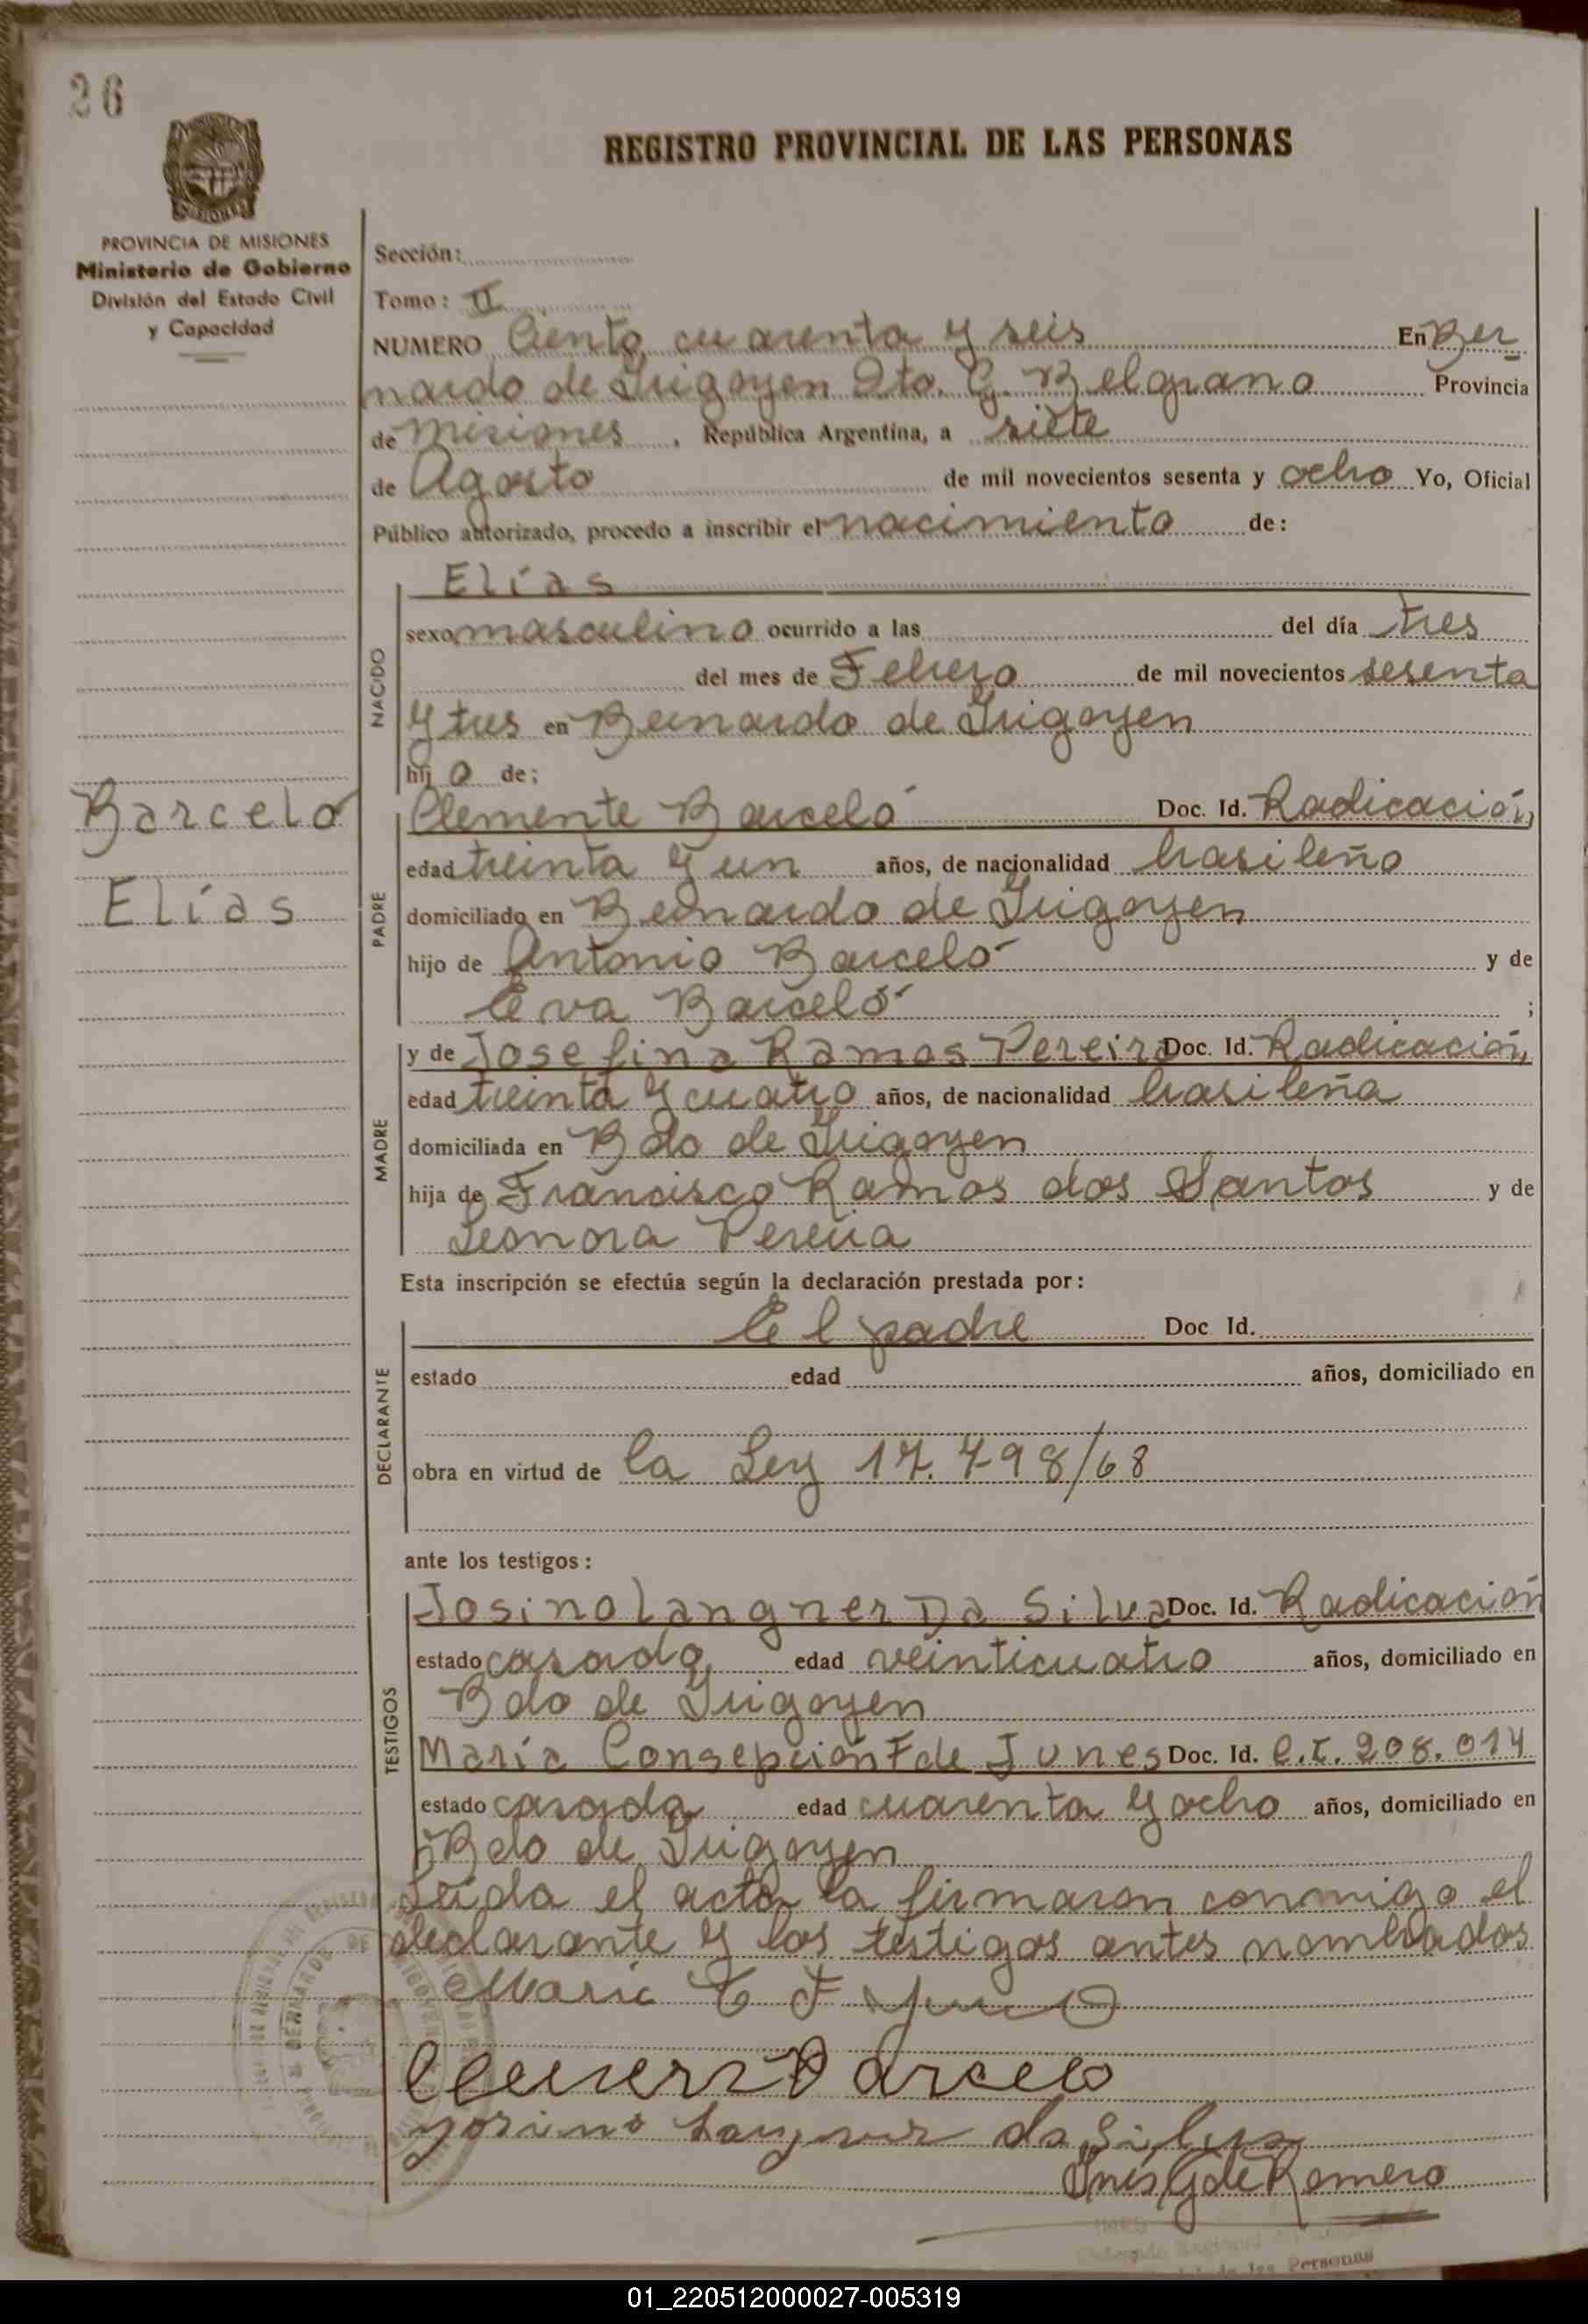 26
REGISTRO PROVINCIAL DE LAS PERSONAS
PROVINCIA DE MISIONES
Ministerio de Gobierno
División del Estado Civil
y Capacidad
Sección:
Tomo: II
NUMERO Ciento cuarenta y seis En Ber
nardo de Irigoyen Dto. G. Belgrano Provincia
de Misiones, República Argentina, a siete
de Agosto de mil novecientos sesenta y ocho Yo, Oficial
Público autorizado, procedo a inscribir el nacimiento de:
Elías
NACIDO
sexo masculino ocurrido a las del día tres
del mes de Febrero de mil novecientos sesenta
y tres en Bernardo de Irigoyen
hij o de;
Barceló
Elías
PADRE
Clemente Barceló Doc. Id. Radicación
edad treinta y un años, de nacionalidad brasileño
domiciliado en Bernardo de Irigoyen
hijo de Antonio Barceló y de
Eva Barceló ;
MADRE
y de Josefina Ramos Pereira Doc. Id. Radicación
edad treinta y cuatro años, de nacionalidad brasileña
domiciliada en Bdo de Irigoyen
hija de Francisco Ramos dos Santos y de
Leonora Pereira
Esta inscripción se efectúa según la declaración prestada por:
DECLARANTE
El padre Doc Id.
estado edad años, domiciliado en
obra en virtud de la Ley 17.798/68
ante los testigos:
TESTIGOS
Josino Langner Da Silva Doc. Id. Radicación
estado casado edad veinticuatro años, domiciliado en
Bdo de Irigoyen
María Consepción F de Junes Doc. Id. C.I. 208.014
estado casada edad cuarenta y ocho años, domiciliado en
Bdo de Irigoyen
Leida el acta la firmaron conmigo el
declarante y los testigos antes nombrados
Maria C F
Barcelo
da Silva
Ines G de Romero
de las Personas
01_220512000027-005319